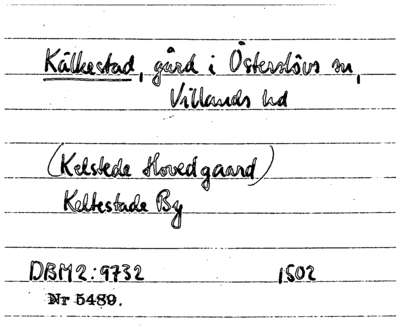 Kälkestad, gård i Österslövs sn,
Villands hd
(Kelstede Hovedgaard)
Keltestade By
DBM2:9732 1502
Nr 5489.